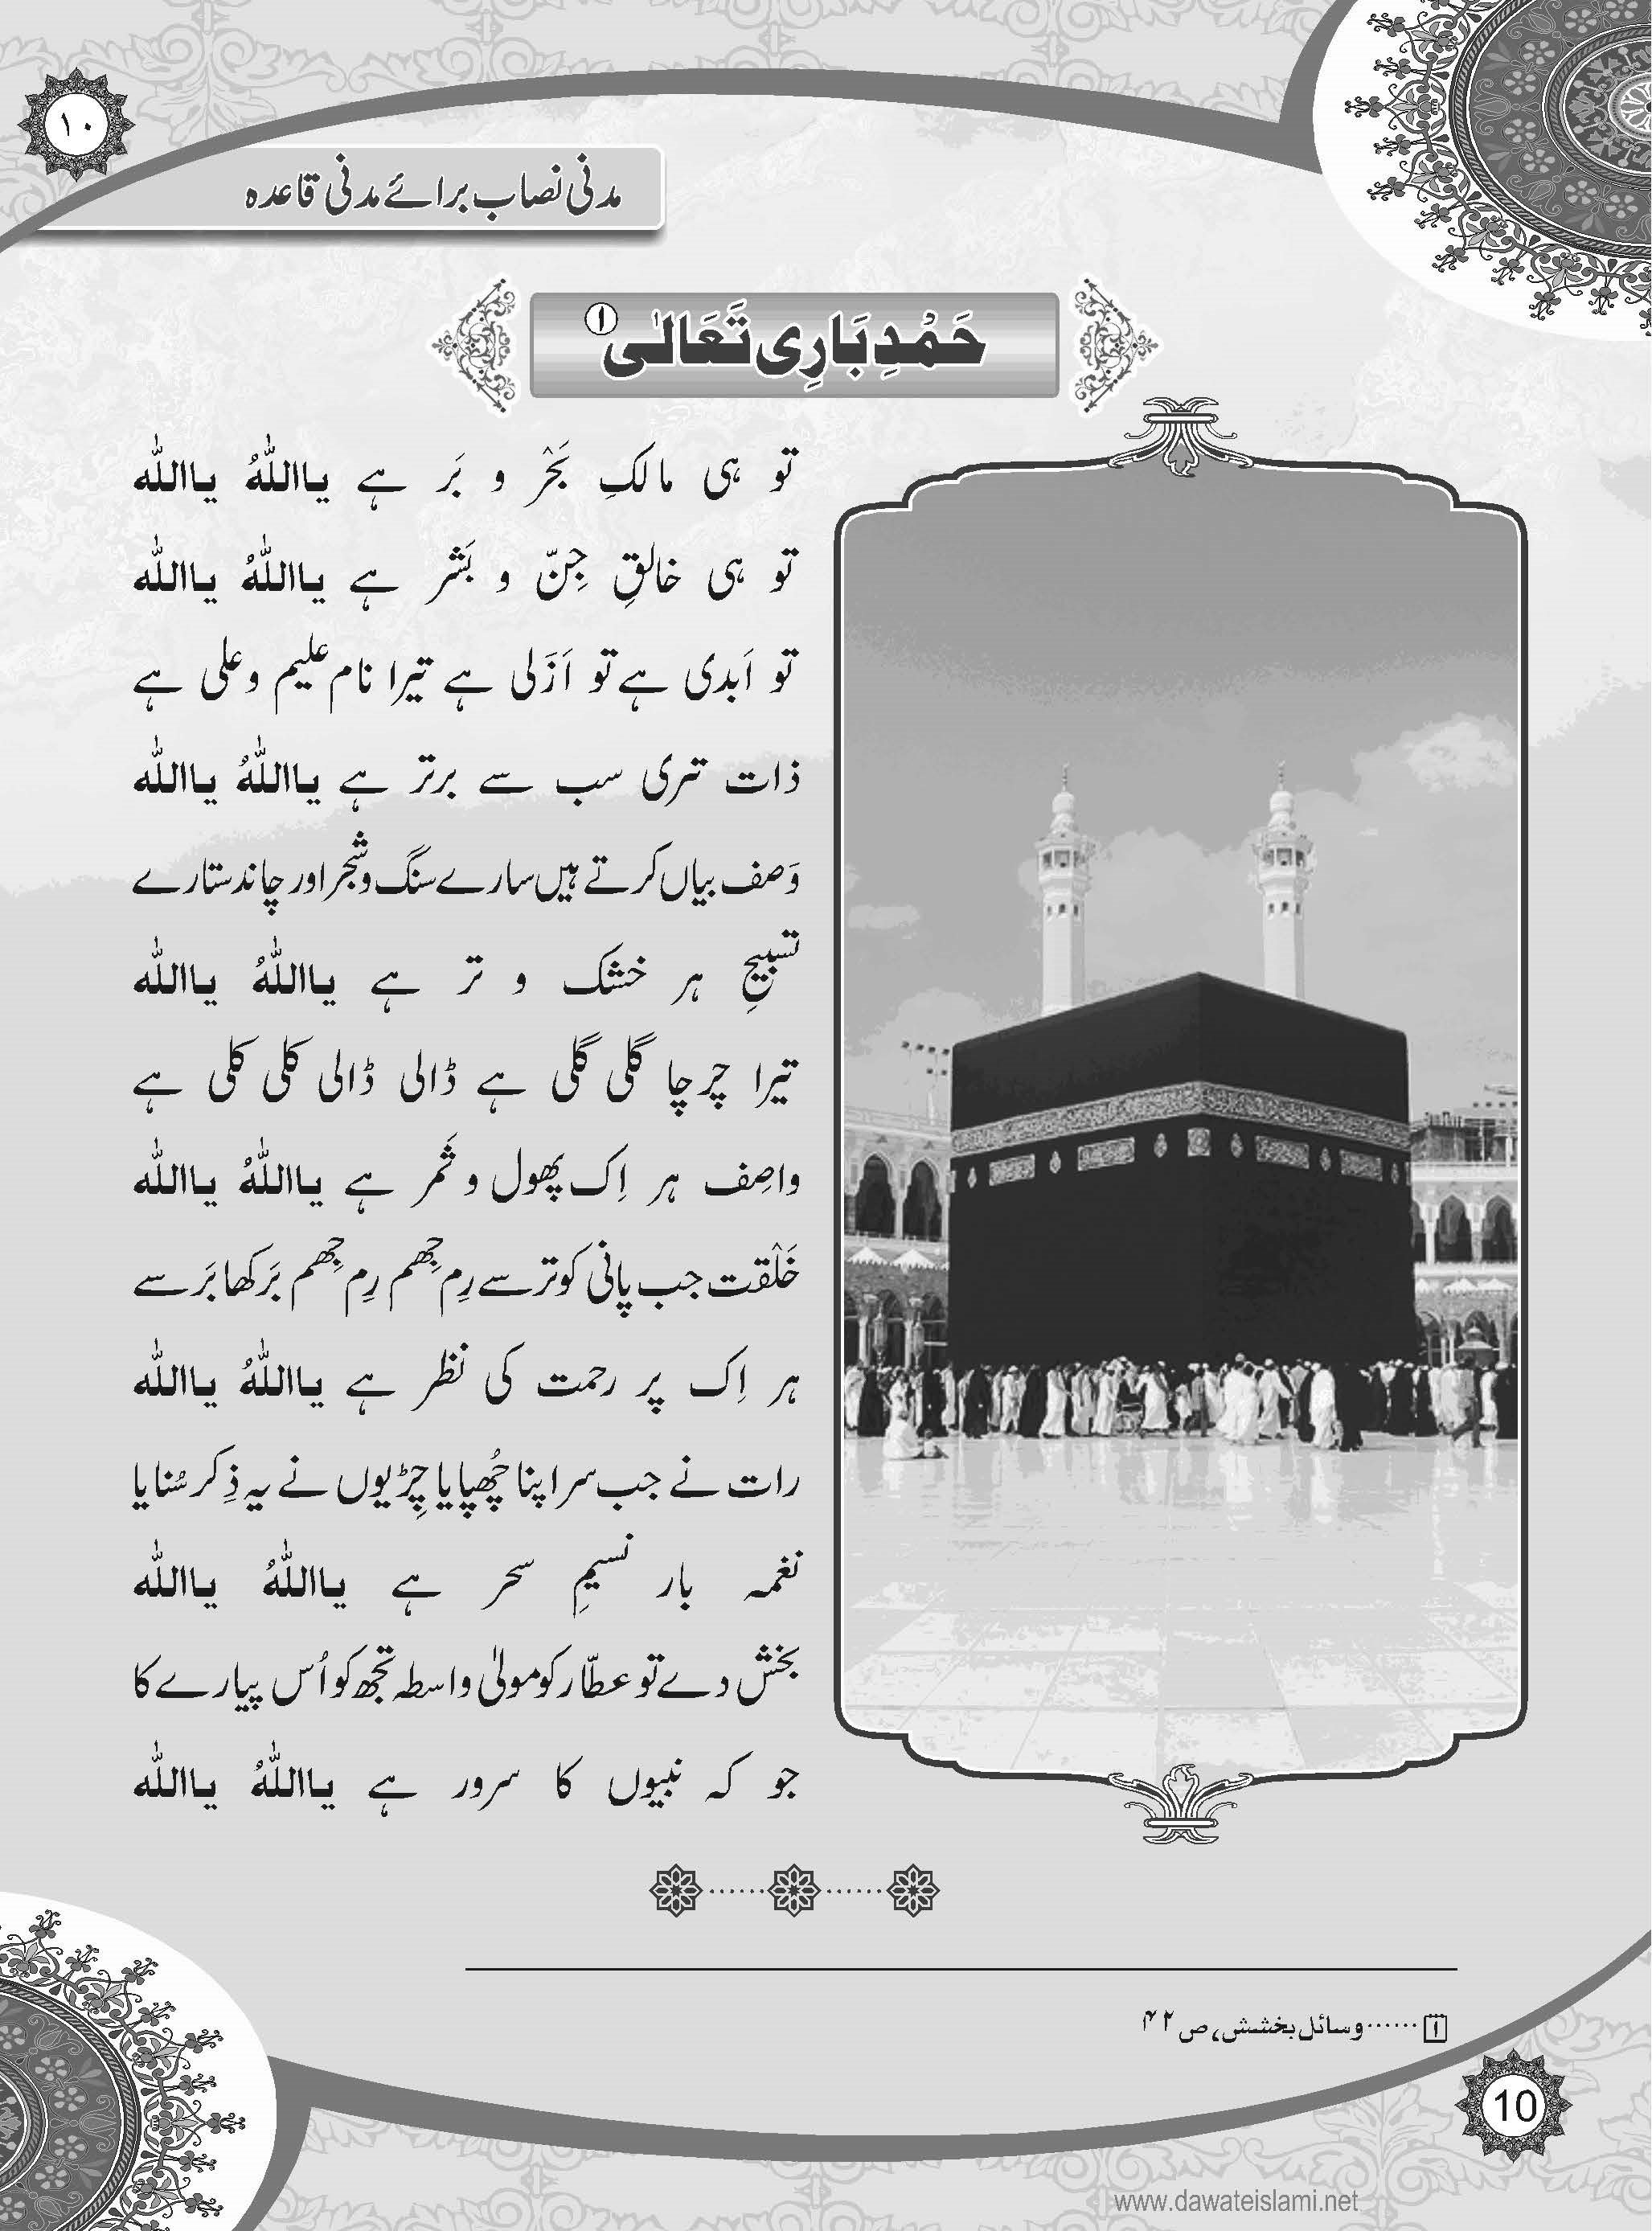 ۱۰
مدنی نصاب برائے مدنی قاعدہ
حَمْدِ بَارِی تَعَالٰی ①
تو ہی مالکِ بَحْر و بَر ہے یااللّٰہُ یااللّٰہ
تو ہی خالقِ جِنّ و بَشَر ہے یااللّٰہُ یااللّٰہ
تو اَبدی ہے تو اَزَلی ہے تیرا نام علیم وعلی ہے
ذات تری سب سے برتر ہے یااللّٰہُ یااللّٰہ
وَصف بیاں کرتے ہیں سارے سنگ و شجر اور چاند ستارے
تسبیحِ ہر خشک و تر ہے یااللّٰہُ یااللّٰہ
تیرا چرچا گلی گلی ہے ڈالی ڈالی کلی کلی ہے
واصِف ہر اِک پھول و ثَمر ہے یااللّٰہُ یااللّٰہ
خَلْقت جب پانی کو ترسے رِم جھم رِم جھم بَرکھا بَرسے
ہر اِک پر رحمت کی نظر ہے یااللّٰہُ یااللّٰہ
رات نے جب سر اپنا چُھپایا چِڑیوں نے یہ ذِکر سُنایا
نغمہ بار نسیمِ سحر ہے یااللّٰہُ یااللّٰہ
بخش دے تو عطّار کو مولیٰ واسطہ تجھ کو اُس پیارے کا
جو کہ نبیوں کا سرور ہے یااللّٰہُ یااللّٰہ
۱ ...... وسائل بخشش، ص ۴۲
10
www.dawateislami.net